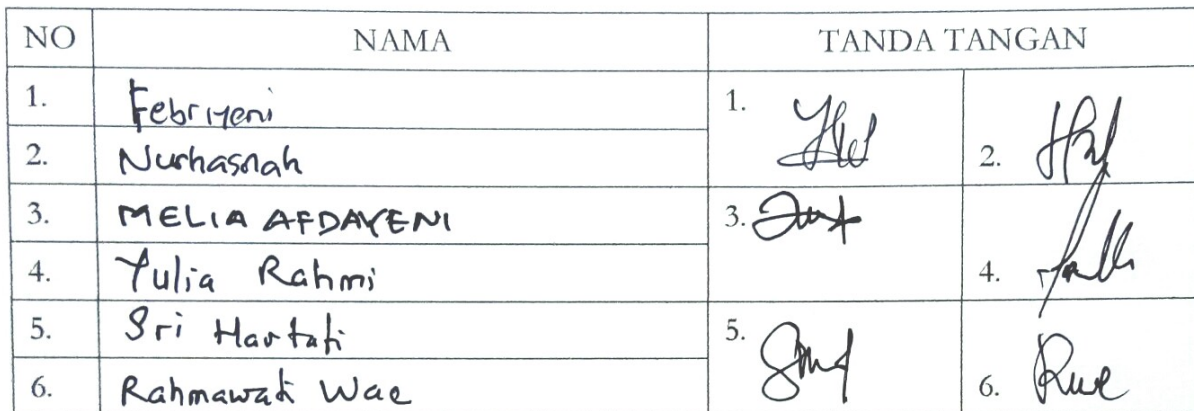 NO NAMA TANDA TANGAN
1. Febriyeni 1.
2. Nurhasnah 2.
3. MELIA AFDAYENI 3.
4. Yulia Rahmi 4.
5. Sri Hartati 5.
6. Rahmawati Wae 6.